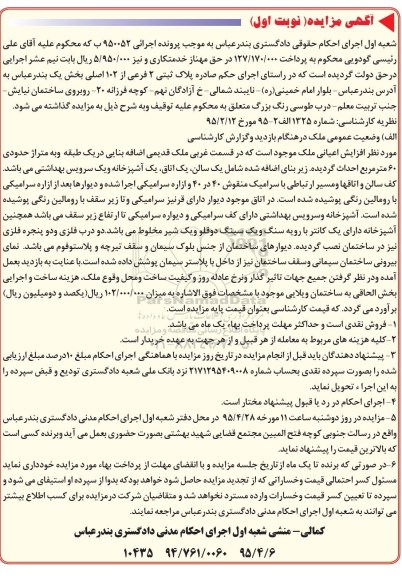 آگهی مزایده( نوبت اول)
شعبه اول اجرای احکام حقوقی دادگستری بندرعباس به موجب پرونده اجرائی ۹۵۰۰۵۲ ب که محکوم علیه آقای علی
رئیسی گودویی محکوم به پرداخت ۱۲۷/۱۷۰/۰۰۰ در حق مهناز خدمتکاری و نیز ۵/۹۵۰/۰۰۰ ریال بابت نیم عشر اجرایی
در حق دولت گردیده است که در راستای اجرای حکم صادره پلاک ثبتی ۲ فرعی از ۱۰۲ اصلی بخش یک بندرعباس به
آدرس بندرعباس- بلوار امام خمینی(ره)- نایبند شمالی - خ آزادگان نهم - کوچه فرزانه ۲۰- روبروی ساختمان نیایش-
جنب تربیت معلم - درب طوسی رنگ بزرگ متعلق به محکوم علیه توقیف وبه شرح ذیل به مزایده گذاشته می شود.
نظریه کارشناسی: شماره ۱۳۲۵ الف۲-۹۵ مورخ ۹۵/۲/۱۲
الف) وضعیت عمومی ملک درهنگام بازدید وگزارش کارشناسی
مورد نظر افزایش اعیانی ملک موجود است که در قسمت غربی ملک قدیمی اضافه بنایی دریک طبقه وبه متراژ حدودی
۶۰ مترمربع احداث گردیده. زیر بنای اضافه شده شامل یک سالن، یک اتاق، یک آشپزخانه ویک سرویس بهداشتی می باشد.
کف سالن و اتاقها ومسیر ارتباطی با سرامیک منقوش ۴۰ در ۴۰ و ازاره سرامیکی اجرا شده و دیوارها بعد از ازاره سرامیکی
با رومالین رنگی پوشیده شده است. در اتاق موجود دیوار دارای قرنیز سرامیکی وتا زیر سقف با رومالین رنگی پوشیده
شده است. آشپزخانه وسرویس بهداشتی دارای کف سرامیکی و دیواره سرامیکی تا ارتفاع زیر سقف می باشد همچنین
آشپزخانه دارای یک کانتر با رویه سنگ ویک سینک دوقلو ویک شیر مخلوط می باشد.دو درب فلزی ودو پنجره فلزی
نیز در ساختمان نصب گردیده. دیوارهای ساختمان از جنس بلوک سیمان و سقف تیرچه و پلاستوفوم می باشد. نمای
بیرونی ساختمان سیمانی وسقف ساختمان نیز از داخل با پلاستر سیمان پوشش داده شده است.با عنایت به بازدید بعمل
آمده ودر نظر گرفتن جمیع جهات تاثیر گذار ونرخ عادله روز وکیفیت ساخت ومحل وقوع ملک، هزینه ساخت و اجرایی
بخش الحاقی به ساختمان ویلایی موجود با مشخصات فوق الاشاره به میزان ۱۰۲/۰۰۰/۰۰۰ ریال(یکصد و دومیلیون ریال)
بر آورد می گردد. که قیمت کارشناسی بعنوان قیمت پایه مزایده است.
۱- فروش نقدی است و حداکثر مهلت پرداخت بهاء یک ماه می باشد.
۲-کلیه هزینه های مربوط به معامله از هر قبیل و از هر جهت به عهده خریدار است.
۳- پیشنهاد دهندگان باید قبل از انجام مزایده در تاریخ روز مزایده با هماهنگی اجرای احکام مبلغ ۱۰درصد مبلغ ارزیابی
شده را بصورت سپرده نقدی بحساب شماره ۲۱۷۱۲۹۵۴۰۹۰۰۸ نزد بانک ملی شعبه دادگستری تودیع و قبض سپرده را
به این اجراء تحویل نماید.
۴- اجرای احکام در رد یا قبول پیشنهاد مختار است.
۵- مزایده در روز دوشنبه ساعت ۱۱ مورخه ۹۵/۴/۲۸ در محل دفتر شعبه اول اجرای احکام مدنی دادگستری بندرعباس
واقع در رسالت جنوبی کوچه فتح المبین مجتمع قضایی شهید بهشتی بصورت حضوری بعمل می آید وبرنده کسی است
که بالاترین قیمت را پیشنهاد نماید.
۶-در صورتی که برنده تا یک ماه از تاریخ جلسه مزایده و با انقضای مهلت از پرداخت بهاء مورد مزایده خودداری نماید
مسئول کسر احتمالی قیمت وخساراتی که از تجدید مزایده حاصل شود خواهد بودکه بدوا از سپرده او استیفای می شود و
سپرده تا تعیین کسر قیمت وخسارات وارده مسترد نخواهد شد و متقاضیان شرکت درمزایده برای کسب اطلاع بیشتر
می توانند به شعبه اول اجرای احکام مدنی دادگستری بندرعباس مراجعه نمایند.
کمالی- منشی شعبه اول اجرای احکام مدنی دادگستری بندرعباس
۹۵/۴/۶ ۹۴/۷۶۱/۰۰۶۰ ۱۰۴۳۵